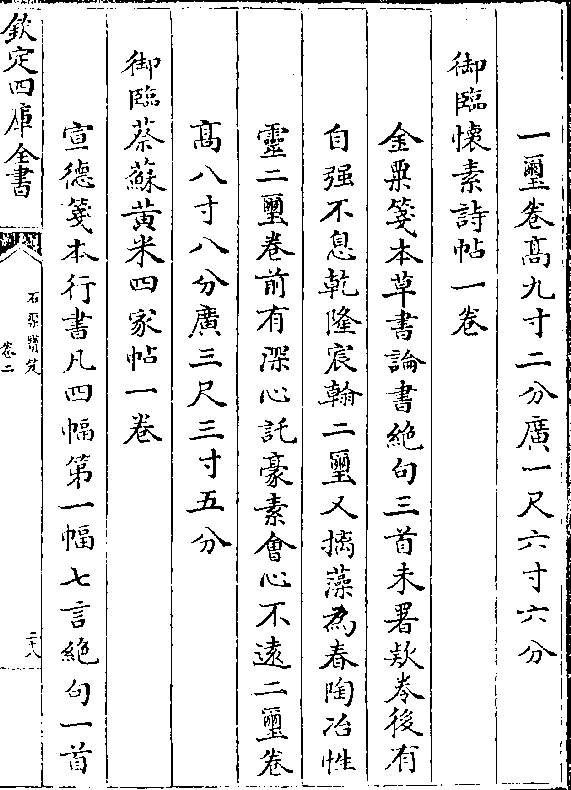 一璽卷高九寸二分廣一尺六寸六分
御臨懷素詩帖一卷
金粟箋本草書論書絶句三首未署欵卷後有
自强不息乾隆宸翰二璽又摛藻為春陶冶性
靈二璽卷前有深心託豪素會心不逺二璽卷
髙八寸八分廣三尺三寸五分
御臨蔡蘇黄米四家帖一卷
宣德箋本行書凡四幅第一幅七言絶句一首
欽定四庫全書
石渠寶笈
卷二
二十八